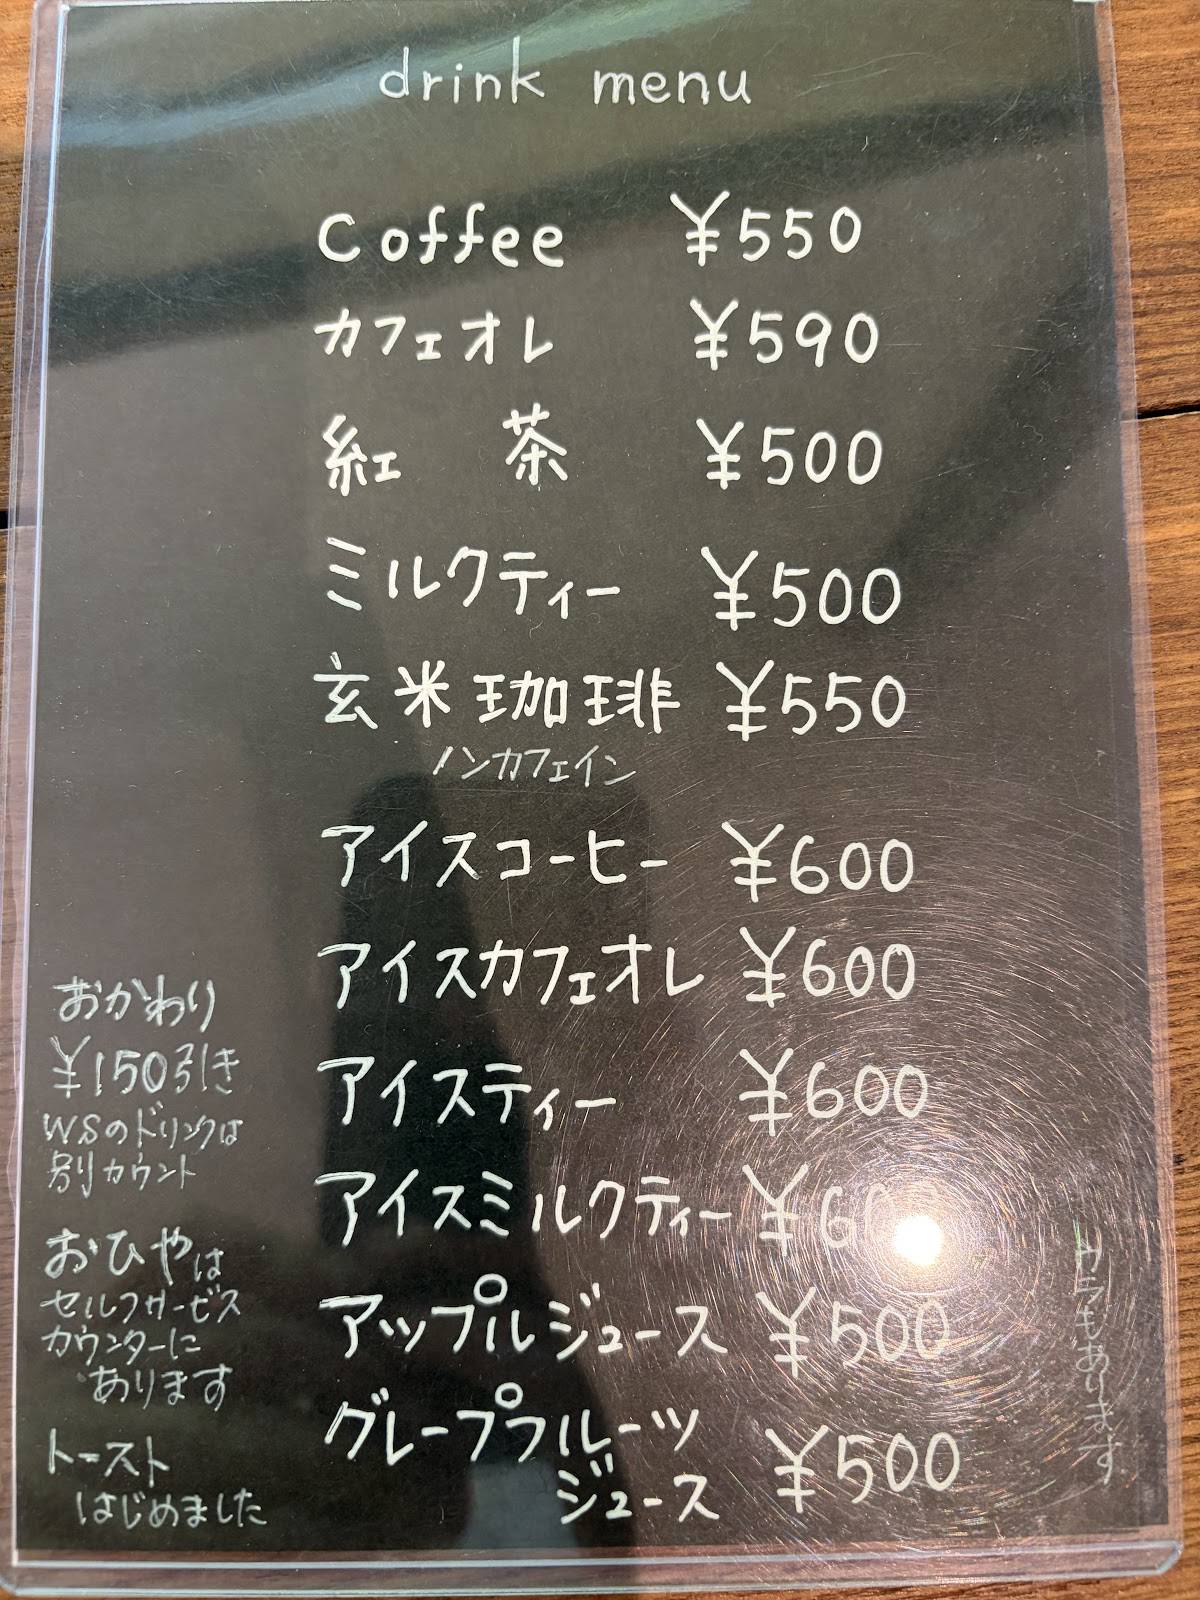 drink menu
Coffee ¥550
カフェオレ ¥590
紅 茶 ¥500
ミルクティー ¥500
玄米珈琲 ¥550
ノンカフェイン
アイスコーヒー ¥600
アイスカフェオレ ¥600
アイスティー ¥600
アイスミルクティー ¥600
アップルジュース ¥500
グレープフルーツ
ジュース ¥500
おかわり
¥150引き
WSのドリンクは
別カウント
おひやは
セルフサービス
カウンターに
あります
トースト
はじめました
ウラもあります